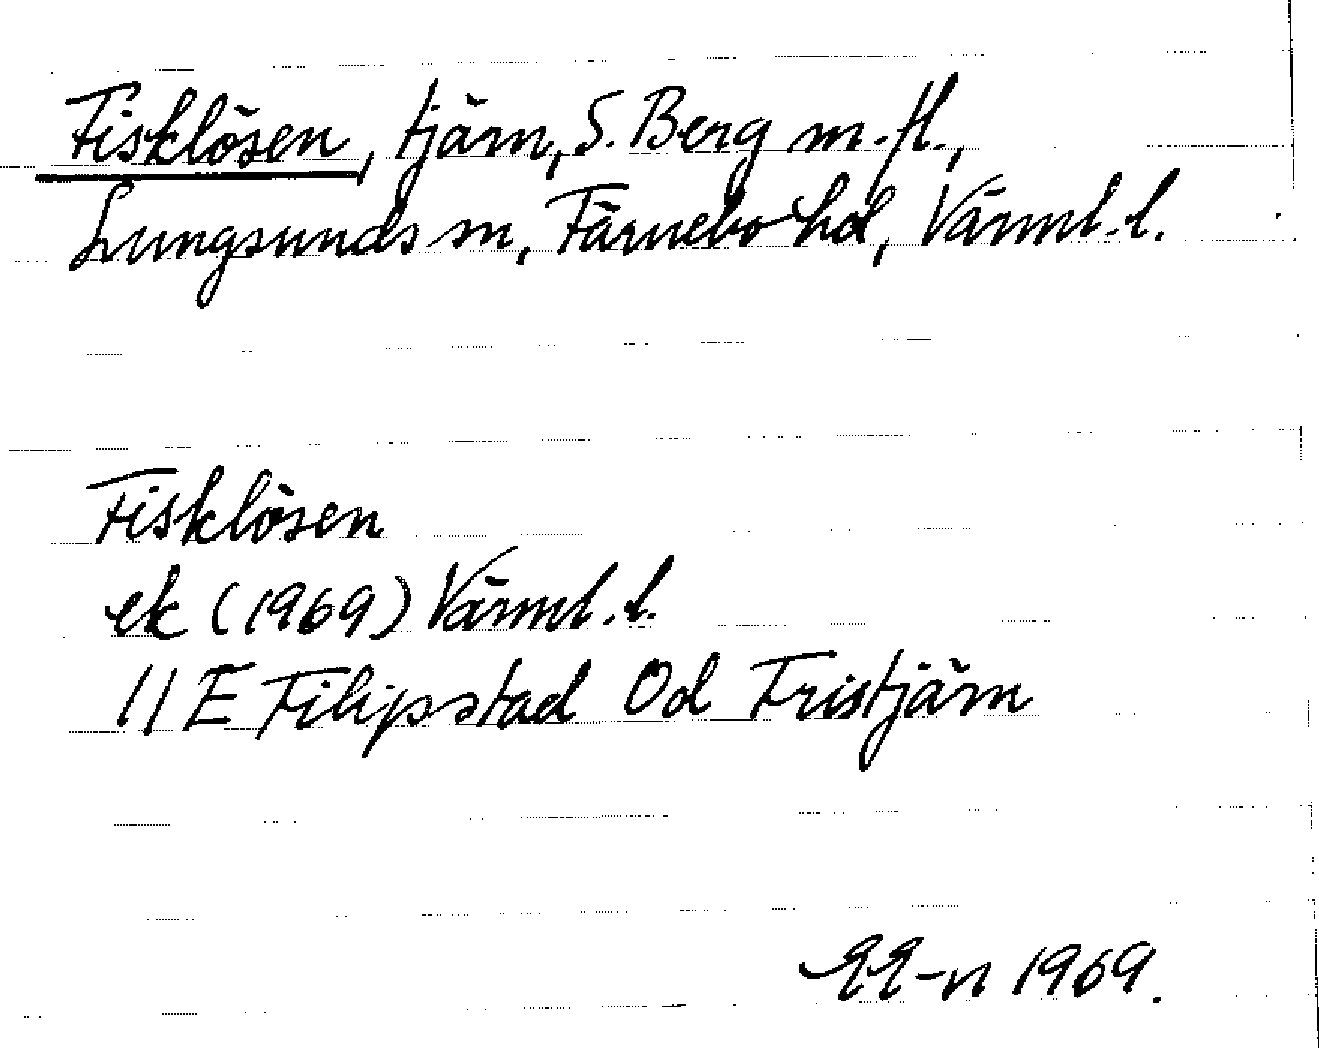 Fisklösen, tjärn, S. Berg m.fl.,
Lungsunds sn, Färnebo hd, Värml. l.
Fisklösen
ek (1969) Värml. l.
11 E Filipstad Od Fristjärn
1969.